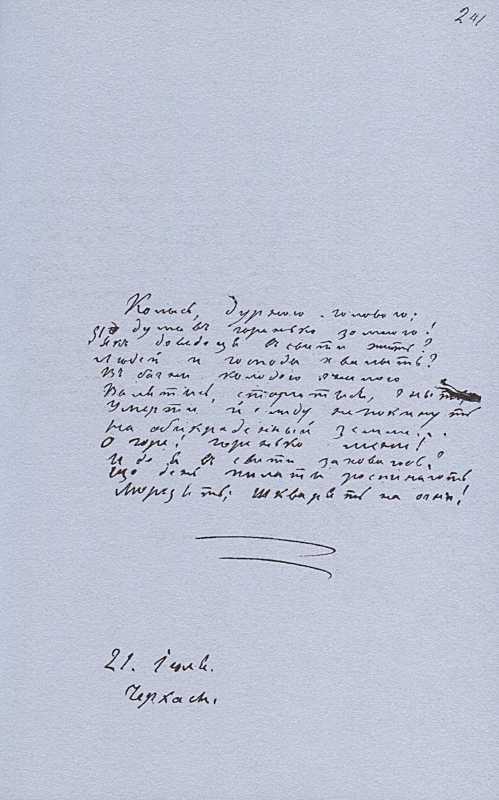 241
Колысь, дурною головою;
Я думавъ горенько зо мною!
Якъ доведецъ въ свити жить?
Людей и господа хвалыть?
Въ багни колодою гнилою
Валятысь, старитысь, гныть,
Умерты й слиду непокинуть
На обикраденный земли...
О горе! горенько мени!
И де я въ свити заховаюсь?
Що день пилаты роспинають
Морозять; шкварять на огни!
21. Іюля.
Черкасы.